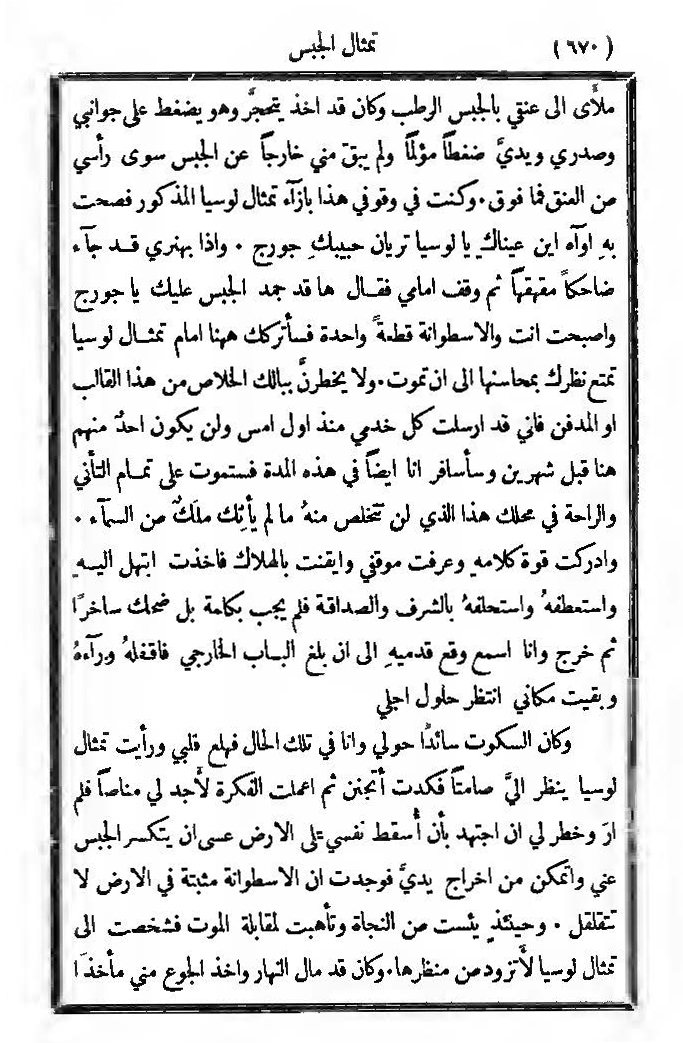 (٦٧٠) تمثال الجبس
ملأى الى عنقي بالجبس الرطب وكان قد اخذ يتحجَّر وهو يضغط على جوانبي
وصدري ويديَّ ضغطاً مؤلماً ولم يبقَ مني خارجاً عن الجبس سوى رأسي
من العنق فما فوق. وكنت في وقوفي هذا بازآء تمثال لوسيا المذكور فصحت
بهِ اوآه اين عيناكِ يا لوسيا تريان حبيبكِ جورج . واذا بهنري قد جآء
ضاحكاً مقهقهاً ثم وقف امامي فقال ها قد جمد الجبس عليك يا جورج
واصبحت انت والاسطوانة قطعةً واحدة فسأتركك ههنا امام تمثال لوسيا
تمتع نظرك بمحاسنها الى ان تموت. ولا يخطرنَّ ببالك الخلاص من هذا القالب
او المدفن فاني قد ارسلت كل خدمي منذ اول امس ولن يكون احدٌ منهم
هنا قبل شهرين وسأسافر انا ايضاً في هذه المدة فستموت على تمام التأني
والراحة في محلك هذا الذي لن تتخلص منهُ ما لم يأتِك ملَكٌ من السمآء .
وادركت قوة كلامهِ وعرفت موقفي وايقنت بالهلاك فاخذت ابتهل اليهِ
واستعطفهُ واستحلفهُ بالشرف والصداقة فلم يجب بكلمة بل ضحك ساخرًا
ثم خرج وانا اسمع وقع قدميهِ الى ان بلغ الباب الخارجي فاقفلهُ ورآءهُ
وبقيت مكاني انتظر حلول اجلي
وكان السكوت سائدًا حولي وانا في تلك الحال فهلع قلبي ورأيت تمثال
لوسيا ينظر اليَّ صامتاً فكدت أتجنن ثم اعملت الفكرة لأجد لي مناصاً فلم
ارَ وخطر لي ان اجتهد بأن أُسقط نفسي على الارض عسى ان يتكسر الجبس
عني واتمكن من اخراج يديَّ فوجدت ان الاسطوانة مثبتة في الارض لا
تتقلقل . وحينئذٍ يئست من النجاة وتأهبت لمقابلة الموت فشخصت الى
تمثال لوسيا لأتزود من منظرها. وكان قد مال النهار واخذ الجوع مني مأخذًا